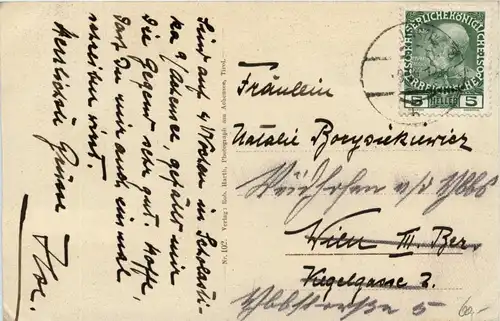 Sind auf 4 Wochen in Scholasti-
ka a/Achensee, gefällt mir
die Gegend sehr gut. Hoffe,
dass Du mir auch einmal
schreiben wirst.
Herzlichen Gruss
Nr. 102. Verlag: Rob. Harth, Photograph am Achensee, Tirol.
KAISERLICHE KÖNIGLICHE
ÖSTERREICHISCHE POST
5 HELLER 5
Fräulein
Natalie Borysiekiewicz
Waidhofen a/d Ybbs
Wien III. Bez.
Kegelgasse 2.
Ybbstorstraße 5
60,-